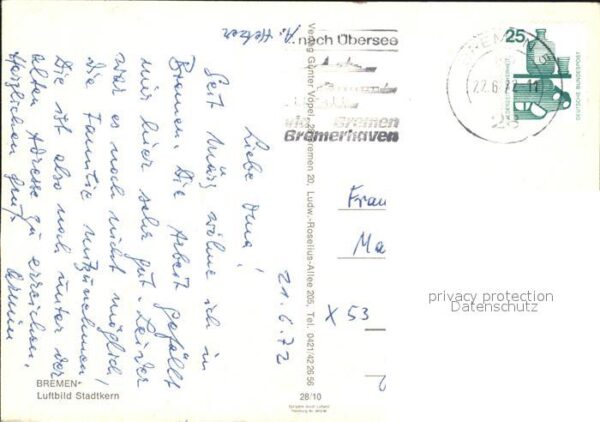 A. Hetzer
21.6.72
Liebe Oma!
Seit März wohne ich in
Bremen. Die Arbeit gefällt
mir hier sehr gut. Leider
war es noch nicht möglich,
die Familie mitzunehmen.
Die ist also noch unter der
alten Adresse zu erreichen.
Herzlichen Gruß
Armin
BREMEN
Luftbild Stadtkern
28/10
Verlag Günter Vogel, 28 Bremen 20, Ludw.-Roselius-Allee 205, Tel. 0421/42 26 56
nach Übersee
via Bremen
Bremerhaven
22.6.72
28
25
DEUTSCHE BUNDESPOST
Frau
Ma
X 53
privacy protection
Datenschutz